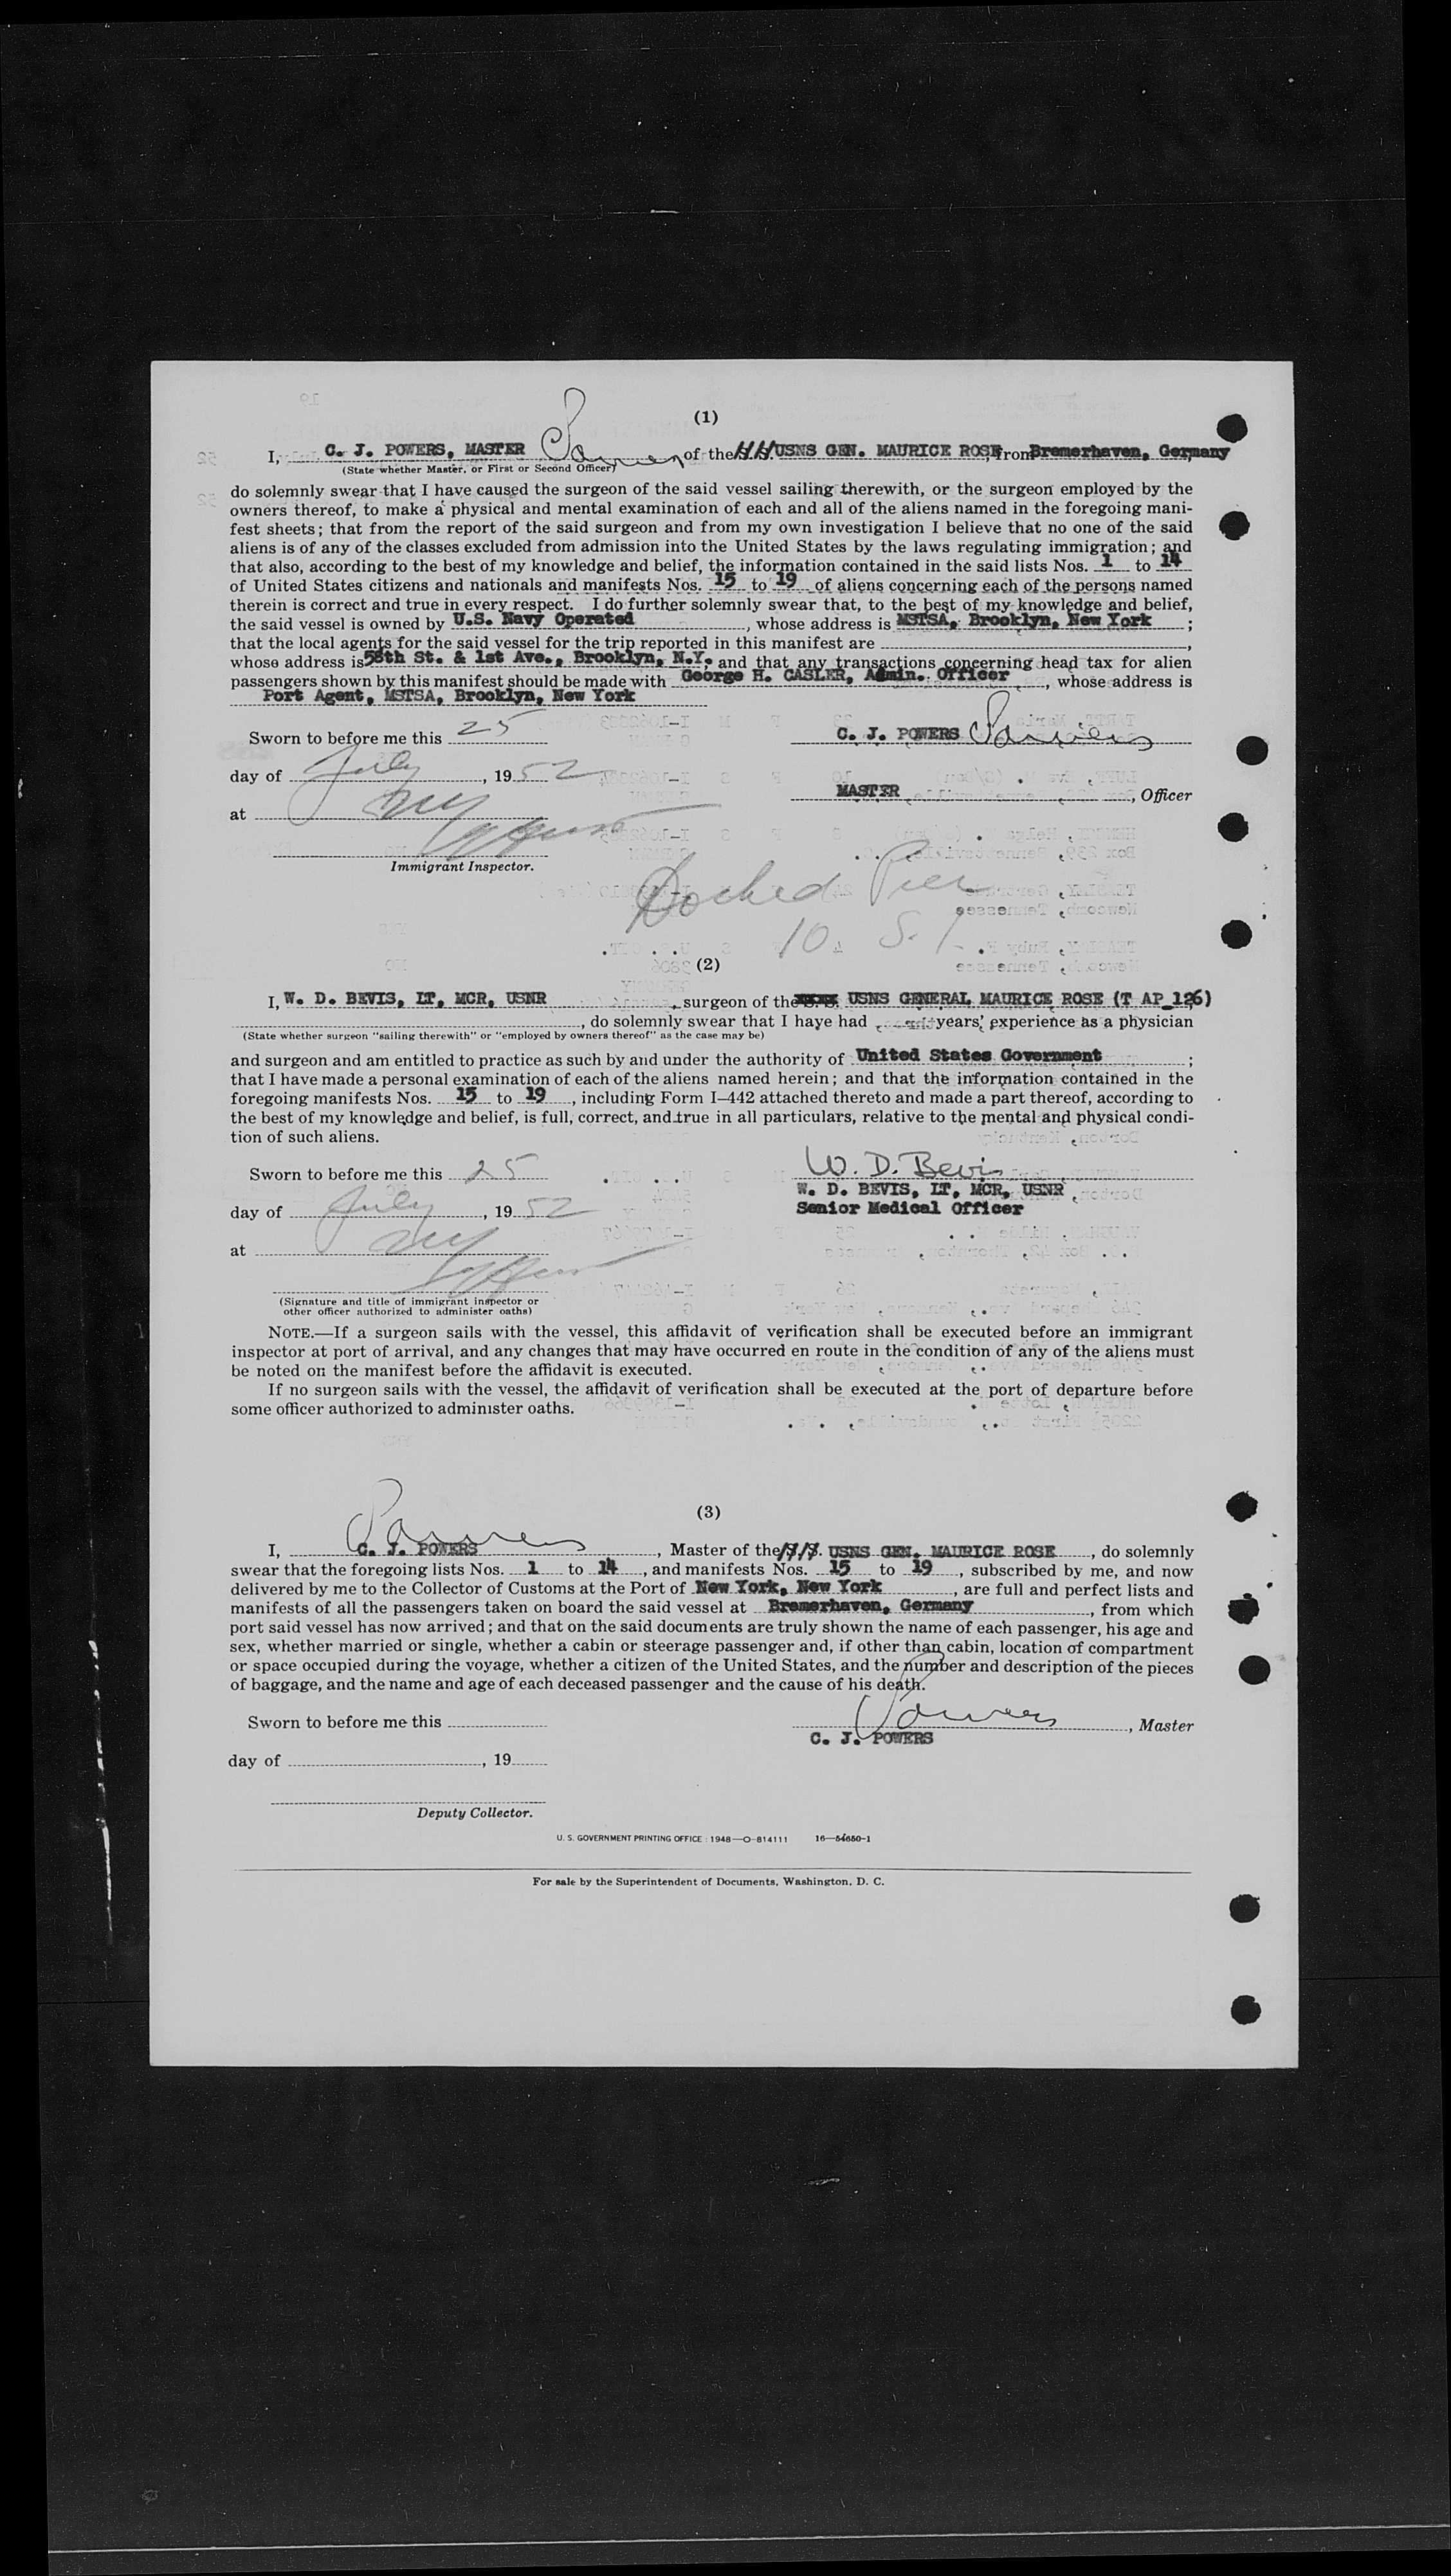 (1)
I, C. J. POWERS, MASTER Powers of the S.S. USNS GEN. MAURICE ROSE, from Bremerhaven, Germany
(State whether Master, or First or Second Officer)
do solemnly swear that I have caused the surgeon of the said vessel sailing therewith, or the surgeon employed by the
owners thereof, to make a physical and mental examination of each and all of the aliens named in the foregoing mani-
fest sheets; that from the report of the said surgeon and from my own investigation I believe that no one of the said
aliens is of any of the classes excluded from admission into the United States by the laws regulating immigration; and
that also, according to the best of my knowledge and belief, the information contained in the said lists Nos. 1 to 14
of United States citizens and nationals and manifests Nos. 15 to 19 of aliens concerning each of the persons named
therein is correct and true in every respect. I do further solemnly swear that, to the best of my knowledge and belief,
the said vessel is owned by U.S. Navy Operated, whose address is MSTSA, Brooklyn, New York;
that the local agents for the said vessel for the trip reported in this manifest are ,
whose address is 58th St. & 1st Ave., Brooklyn, N.Y. and that any transactions concerning head tax for alien
passengers shown by this manifest should be made with George H. CASLER, Admin. Officer, whose address is
Port Agent, MSTSA, Brooklyn, New York
Sworn to before me this 25
C. J. POWERS Powers
day of July, 1952
MASTER, Officer
at NY
Immigrant Inspector.
Docked Pier
10 S.I.
(2)
I, W. D. BEVIS, LT, MCR, USNR, surgeon of the USNS GENERAL MAURICE ROSE (T AP 126)
, do solemnly swear that I have had years' experience as a physician
(State whether surgeon "sailing therewith" or "employed by owners thereof" as the case may be)
and surgeon and am entitled to practice as such by and under the authority of United States Government;
that I have made a personal examination of each of the aliens named herein; and that the information contained in the
foregoing manifests Nos. 15 to 19, including Form I–442 attached thereto and made a part thereof, according to
the best of my knowledge and belief, is full, correct, and true in all particulars, relative to the mental and physical condi-
tion of such aliens.
Sworn to before me this 25
W. D. Bevis
W. D. BEVIS, LT, MCR, USNR
day of July, 1952
Senior Medical Officer
at NY
(Signature and title of immigrant inspector or
other officer authorized to administer oaths)
NOTE.—If a surgeon sails with the vessel, this affidavit of verification shall be executed before an immigrant
inspector at port of arrival, and any changes that may have occurred en route in the condition of any of the aliens must
be noted on the manifest before the affidavit is executed.
If no surgeon sails with the vessel, the affidavit of verification shall be executed at the port of departure before
some officer authorized to administer oaths.
(3)
Powers
I, C. J. POWERS, Master of the S.S. USNS GEN. MAURICE ROSE, do solemnly
swear that the foregoing lists Nos. 1 to 14, and manifests Nos. 15 to 19, subscribed by me, and now
delivered by me to the Collector of Customs at the Port of New York, New York, are full and perfect lists and
manifests of all the passengers taken on board the said vessel at Bremerhaven, Germany, from which
port said vessel has now arrived; and that on the said documents are truly shown the name of each passenger, his age and
sex, whether married or single, whether a cabin or steerage passenger and, if other than cabin, location of compartment
or space occupied during the voyage, whether a citizen of the United States, and the number and description of the pieces
of baggage, and the name and age of each deceased passenger and the cause of his death.
Sworn to before me this
Powers, Master
C. J. POWERS
day of , 19
Deputy Collector.
U. S. GOVERNMENT PRINTING OFFICE : 1948—O-814111 16—54650-1
For sale by the Superintendent of Documents, Washington, D. C.